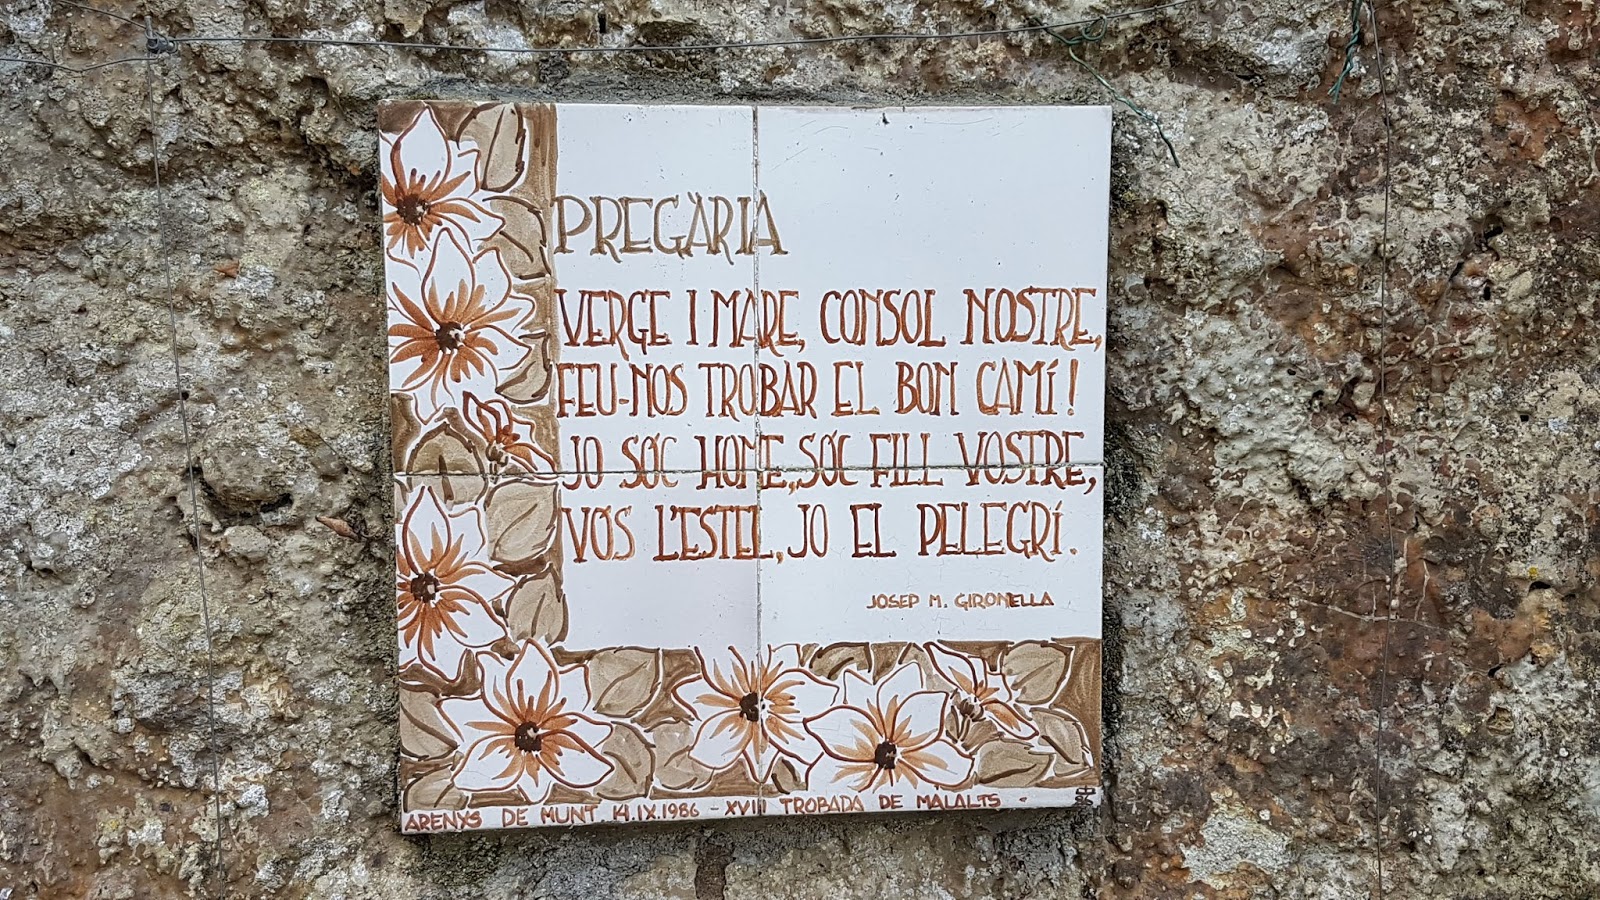 PREGÀRIA
VERGE I MARE, CONSOL NOSTRE,
FEU-NOS TROBAR EL BON CAMÍ!
JO SÓC HOME, SÓC FILL VOSTRE,
VÓS L'ESTEL, JO EL PELEGRÍ.
JOSEP M. GIRONELLA
ARENYS DE MUNT, 14.IX.1986 - XVIII TROBADA DE MALALTS